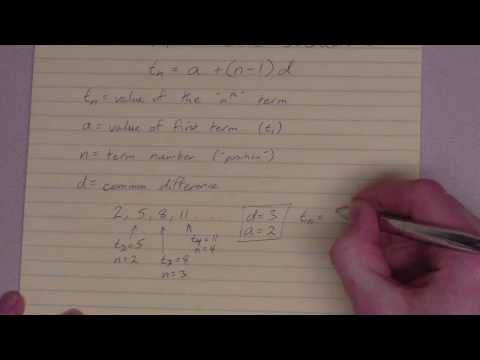 tn = a + (n-1)d
tn = value of the "nth" term
a = value of first term (t1)
n = term number ("position")
d = common difference
2, 5, 8, 11 ...
d = 3
a = 2
tn =
t2=5
n=2
t3=8
n=3
t4=11
n=4